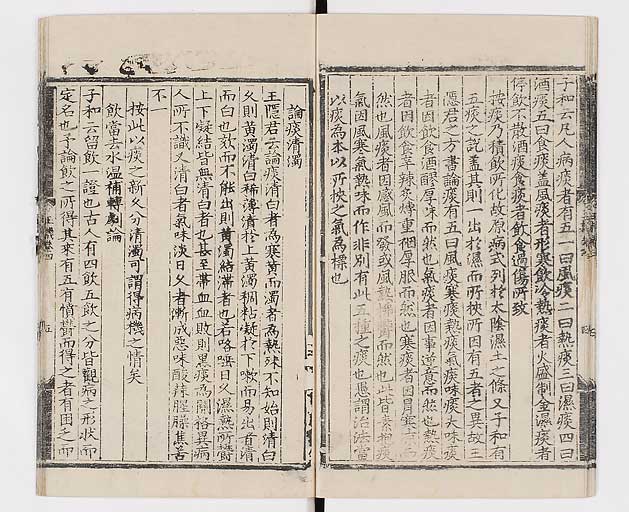 子和云凡人病痰者有五一曰風痰二曰熱痰三曰濕痰四曰
酒痰五曰食痰盖風痰者形寒飲冷熱痰者火盛制金濕痰者
停飲不散酒痰食痰者飲食過傷所致
按痰乃積飲所化故原病式列於太陰濕土之條又子和有
五痰之說盖其則一出於濕而所挾所因有五者之異故王
隱君之方書論痰有五曰風痰寒痰熱痰氣痰味痰夫味痰
者因飲食酒醪厚味而然也氣痰者因事逆意而然也熱痰
者因飲食辛辣炙煿重裀厚服而然也寒痰者因
然也風痰者因感風而發或風熱怫鬱而然也此皆素抱痰
氣因風寒氣熱味而作非別有此五種之痰也愚謂治法當
以痰為本以所挾之氣為標也
論痰清濁
王隱君云論痰清白者為寒黃而濁者為熱殊不知始則清白
久則黃濁清白稀薄漬於上黃濁稠粘凝於下嗽而易出者清
而白也欬而不能出則黃濁結滯者也若咯唾日久濕熱所鬱
上下凝結皆無清白者也甚至帶血血敗則黑痰為關格異病
人所不識又清白者氣味淡日久者漸成惡味酸辣腥臊焦苦
不一
按此以痰之新久分清濁可謂得病機之情矣
飲當去水温補轉劇論
子和云留飲一證也古人有四飲五飲之分皆觀病之形狀而
定名也予論飲之所得其來有五有憤鬱而得之者有困乏而